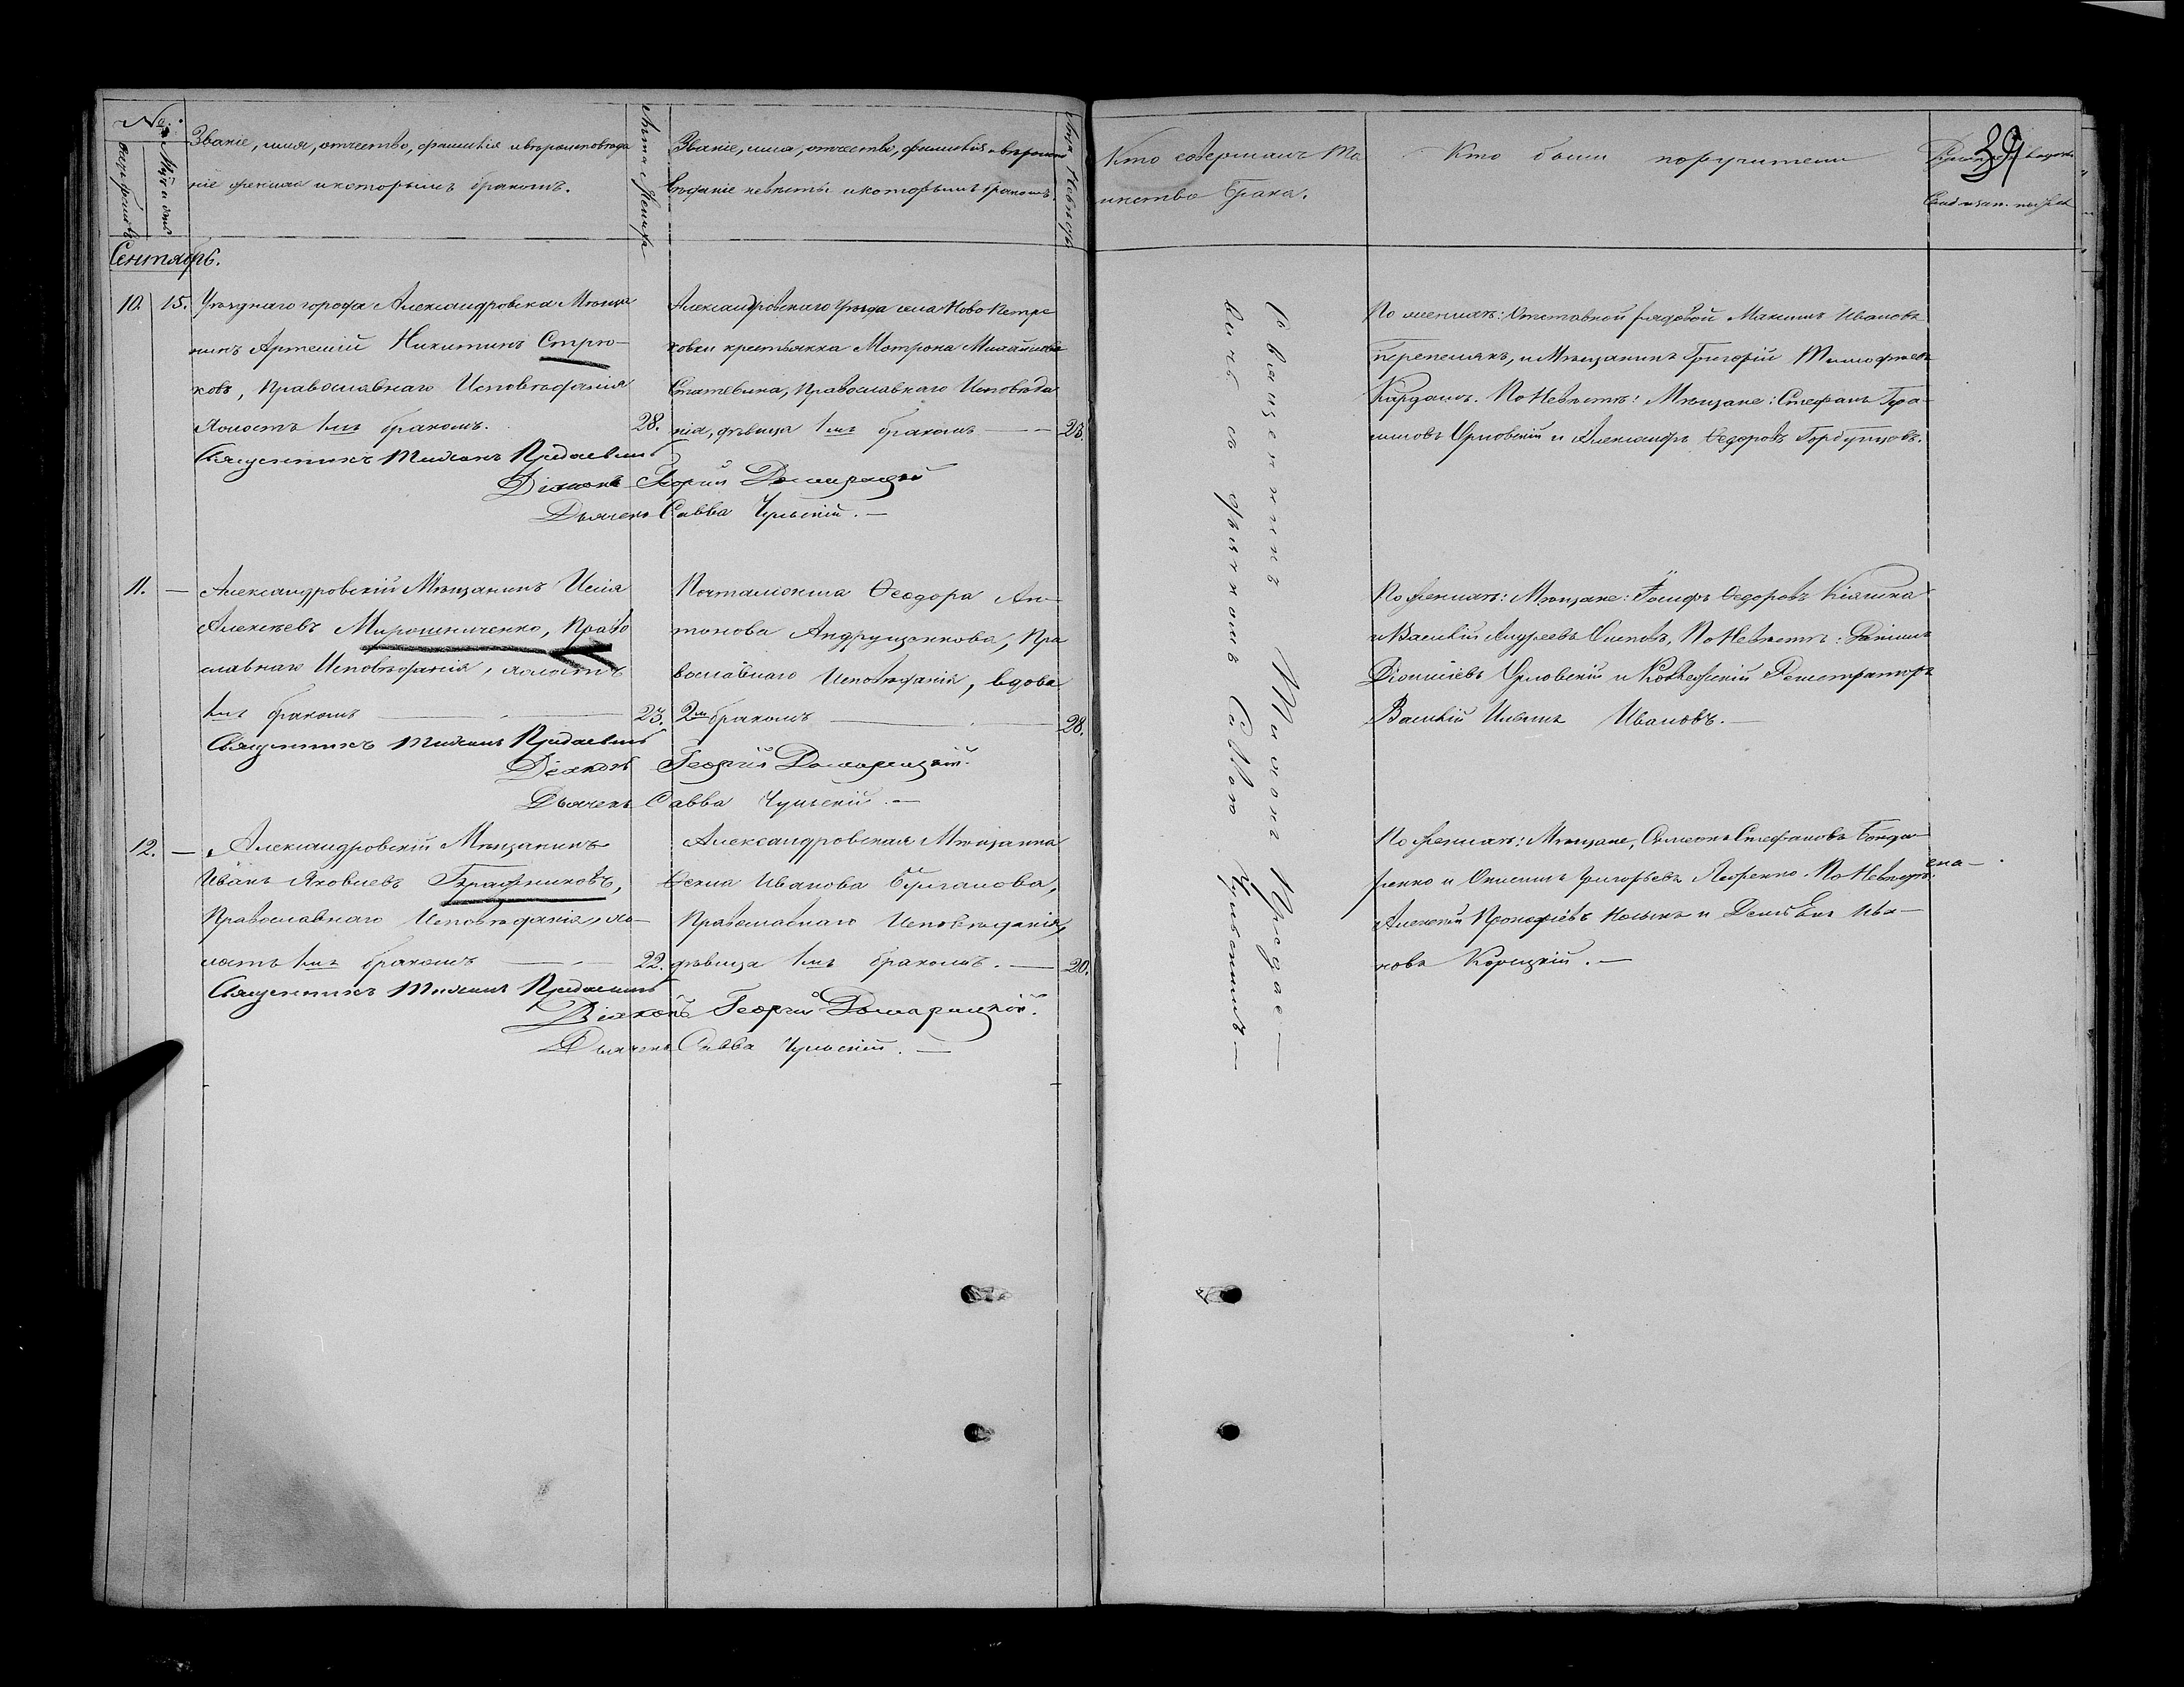 №
Счетъ браковъ
Мѣс. и день
Званіе, имя, отчество, фамилія и вѣроисповѣда
ніе жениха и которымъ бракомъ.
Лѣта Жениха
Званіе, имя, отчество, фамилія и вѣроиспо
вѣданіе невѣсты и которымъ бракомъ.
Лѣта Невѣсты
Кто совершалъ Та
инство Брака.
Кто были поручители
39
Сентябрь.
10. 15. Уѣзднаго города Александровска Мѣща
нинъ Артемій Никитинъ Стрю-
ковъ, Православнаго Исповѣданія
холостъ 1мъ бракомъ. 28.
Александровскаго Уѣзда села Ново Петро
ковки крестьянка Мотрона Михайлова
Статевина, Православнаго Исповѣда
нія, дѣвица 1мъ бракомъ — 23.
По женихѣ: Отставной рядовой Максимъ Ивановъ
Перепелякъ, и Мѣщанинъ Григорій Тимофеевъ
Кардашъ. По Невѣстѣ: Мѣщане: Стефанъ Гера-
симовъ Орловскій и Александръ Федоровъ Горбунцовъ.
Священникъ Тихонъ Предаевичъ
Діаконъ Георгій Домарицкій
Дьячекъ Савва Чульскій. —
11. — Александровскій Мѣщанинъ Исаія
Алексѣевъ Мирошниченко, Право
славнаго Исповѣданія, холостъ
1мъ бракомъ — 23.
Почталіонша Ѳеодора Ан-
тонова Андрущенкова, Пра
вославнаго Исповѣданія, вдова
2мъ бракомъ — 28.
По женихѣ: Мѣщане: Іосифъ Федоровъ Кіяшка
и Василій Андреевъ Осиповъ, По Невѣстѣ: Даніилъ
Діонисіевъ Орловскій и Коллежскій Регистраторъ
Василій Ивановъ. —
Священникъ Тихонъ Предаевичъ
Діаконъ Георгій Домарицкій.
Дьячекъ Савва Чульскій. —
12. — Александровскій Мѣщанинъ
Иванъ Яковлевъ Бражниковъ,
Православнаго Исповѣданія, хо-
лостъ 1мъ бракомъ — 22.
Александровская Мѣщанка
Иванова Бурганова,
Православнаго Исповѣданія,
дѣвица 1мъ бракомъ. — 20.
По женихѣ: Мѣщане, Симеонъ Стефановъ Бонда-
ренко и Онисимъ Григорьевъ Лавренко. По Невѣстѣ:
Алексѣй Прокофіевъ и Ива-
новъ Корицкій. —
Священникъ Тихонъ Предаевичъ
Діаконъ Георгій Домарицкій.
Дьячекъ Савва Чульскій. —
Священникъ Тихонъ Предае-
вичъ съ дьячкомъ Саввою Чульскимъ —